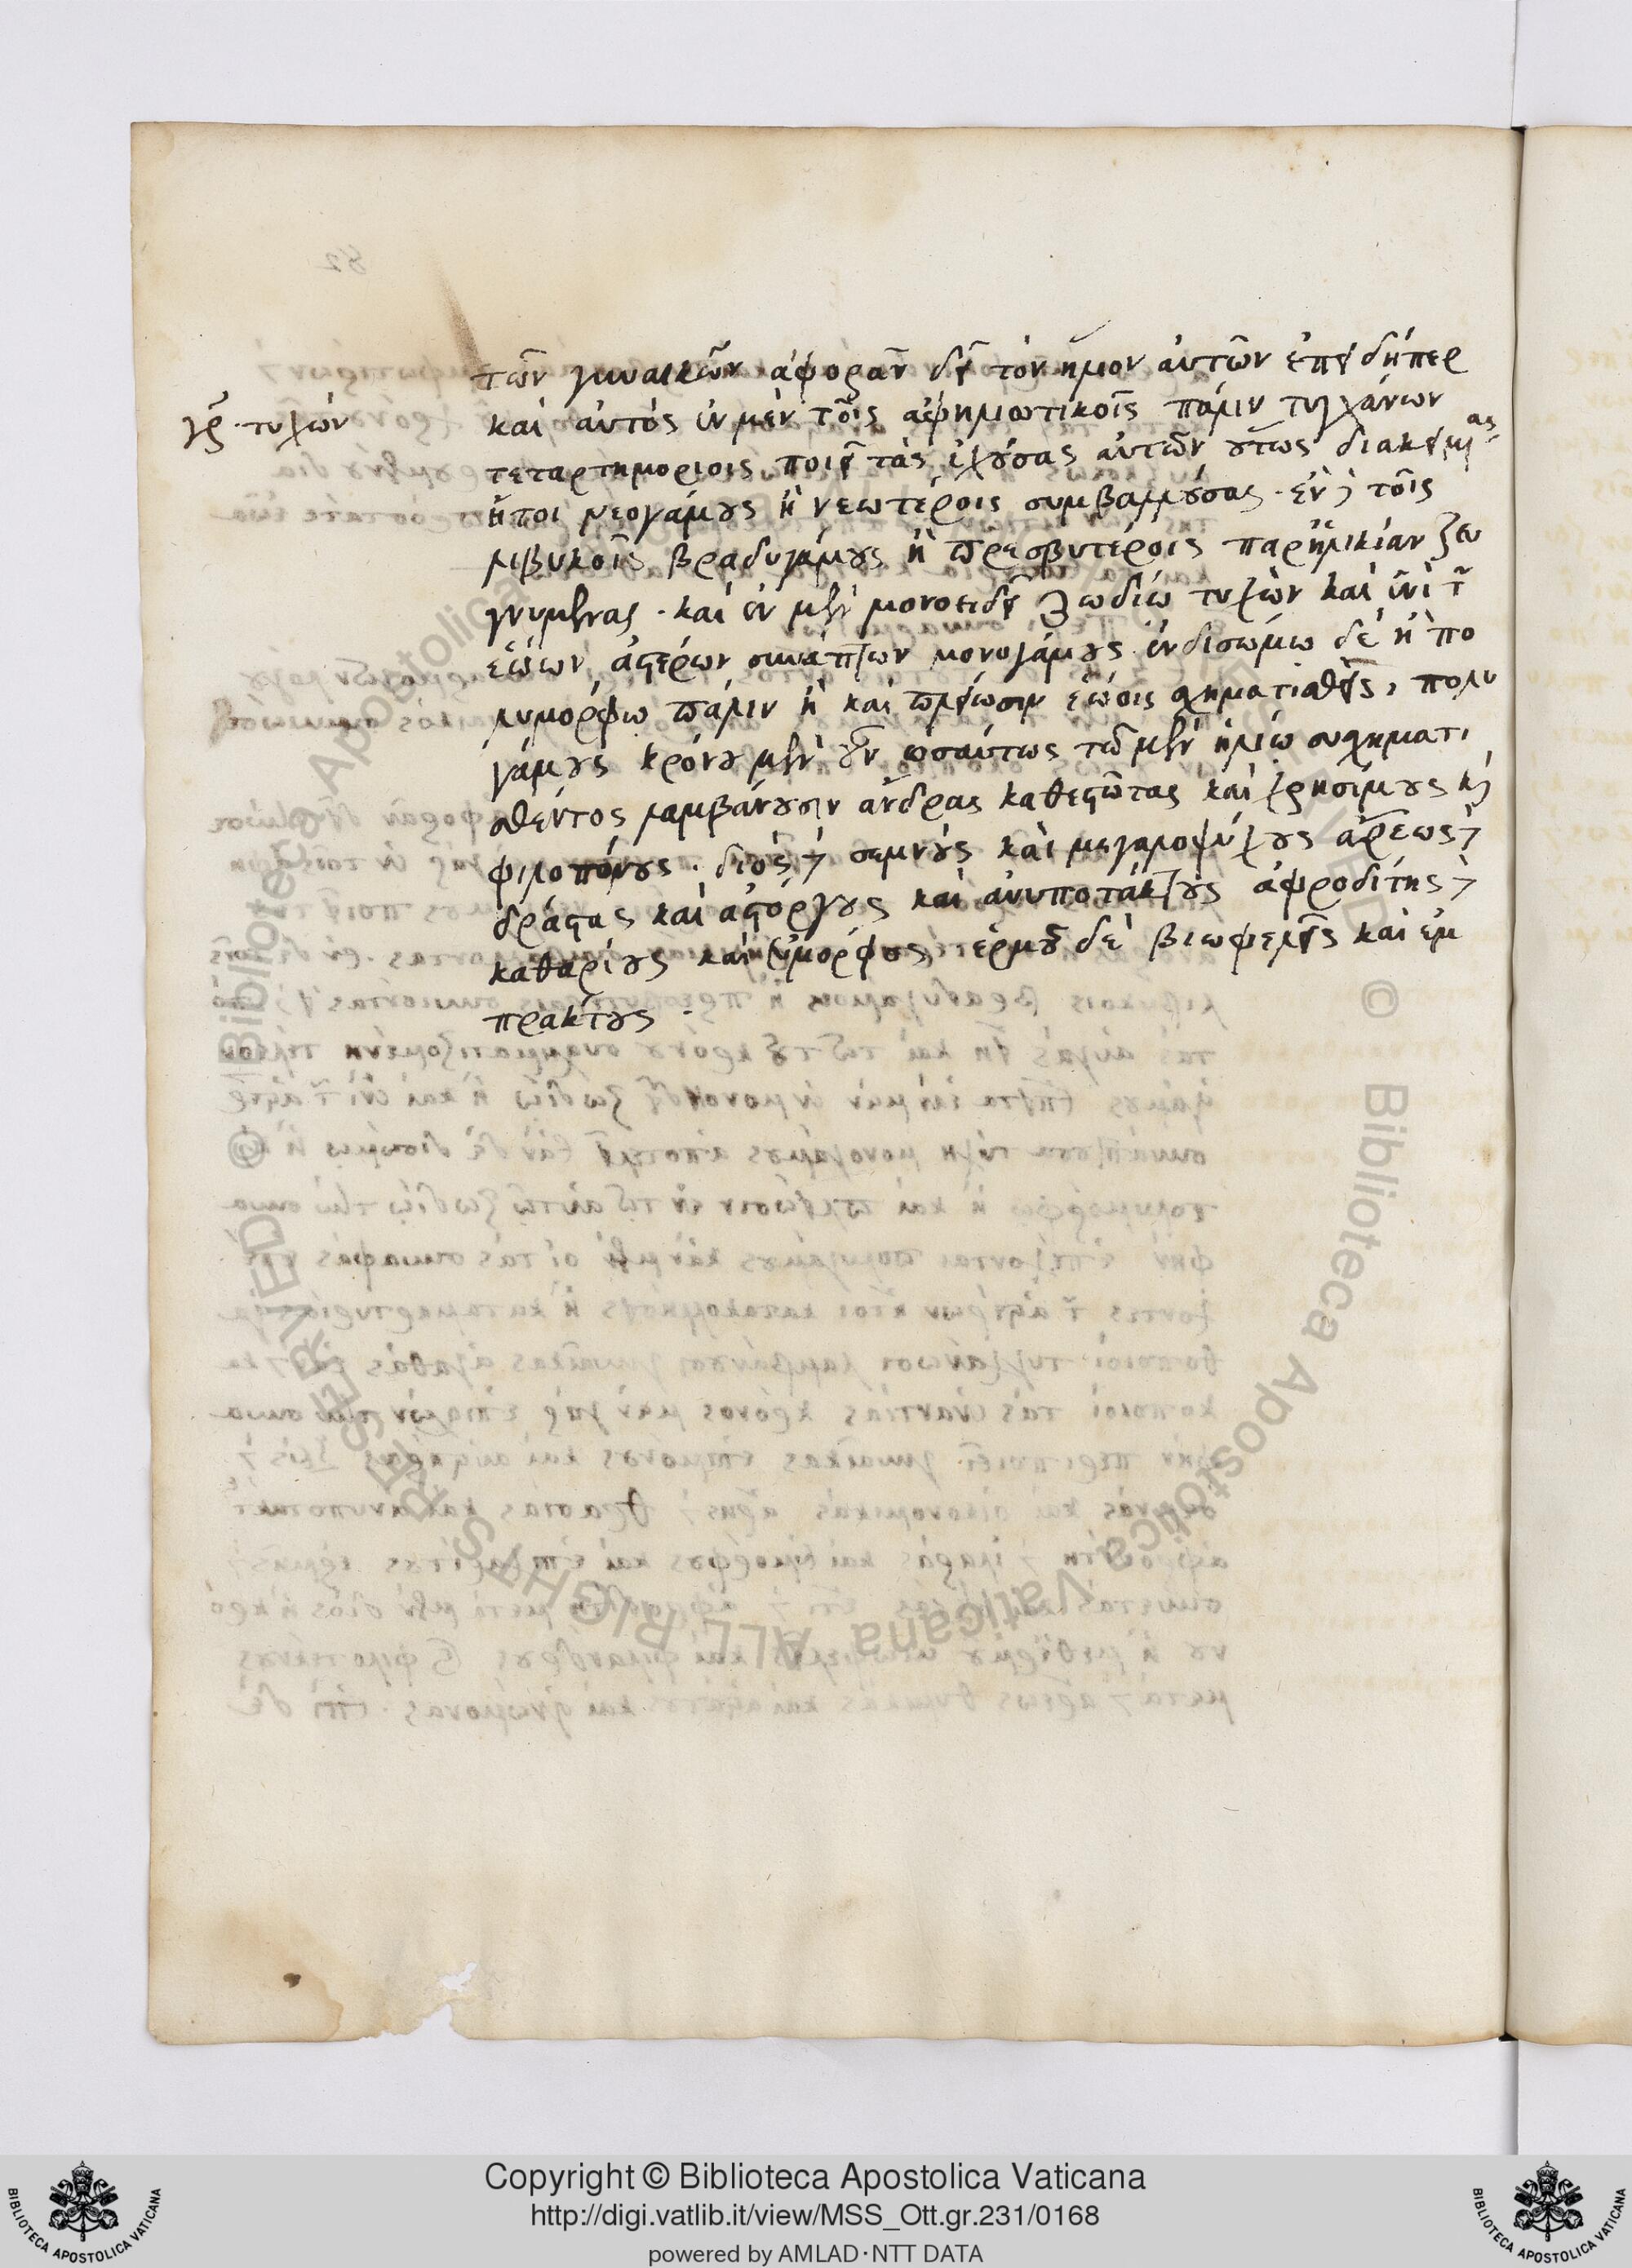 τῶν γυναικῶν ἀφορᾶν δεῖ τὸν ἥλιον αὐτῶν ἐπειδήπερ
γρ. τυχών
καὶ αὐτὸς ἐν μὲν τοῖς ἀφηλιωτικοῖς πάλιν τυγχάνων
τεταρτημορίοις ποιεῖ τὰς ἐχούσας αὐτῶν οὕτως διακειμένας
ἤτοι νεογάμους ἢ νεωτέροις συμβαλλούσας. ἐν δὲ τοῖς
λιβυκοῖς βραδυγάμους ἢ πρεσβυτέροις παρήλικίαν ζευ
γνυμένας. καὶ ἐν μὲν μονοειδεῖ ζωδίω τυχὼν καὶ ἑνὶ τῶν
ἑώων ἀστέρων συνάπτων μονογάμους. ἐν δισώμω δὲ ἢ πο
λυμόρφω πάλιν ἢ καὶ πλείωσιν ἑώοις σχηματισθεὶς, πολυ
γάμους κρόνου μὲν οὖν ὡσαύτως τῶ μὲν ἡλίω συσχηματι
σθέντος λαμβάνουσιν ἄνδρας καθεστῶτας καὶ χρησίμους καὶ
φιλοπόνους. διὸς δὲ σεμνοὺς καὶ μεγαλοψύχους ἄρεως δὲ
δράστας καὶ ἀστόργους καὶ ἀνυποτάκτους ἀφροδίτης δὲ
καθαρίους καὶ εὐμόρφους, ἑρμοῦ δὲ βιωφελεῖς καὶ ἐμ
πράκτους.
Copyright © Biblioteca Apostolica Vaticana
http://digi.vatlib.it/view/MSS_Ott.gr.231/0168
powered by AMLAD·NTT DATA
BIBLIOTECA APOSTOLICA VATICANA
BIBLIOTECA APOSTOLICA VATICANA
© Biblioteca Apostolica Vaticana ALL RIGHTS RESERVED